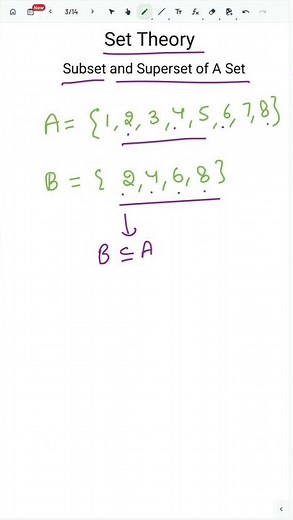 New
3/14
Tr
fx
Set Theory
Subset and Superset of A Set
A = {1, 2, 3, 4, 5, 6, 7, 8}
B = { 2, 4, 6, 8 }
↓
B ⊆ A